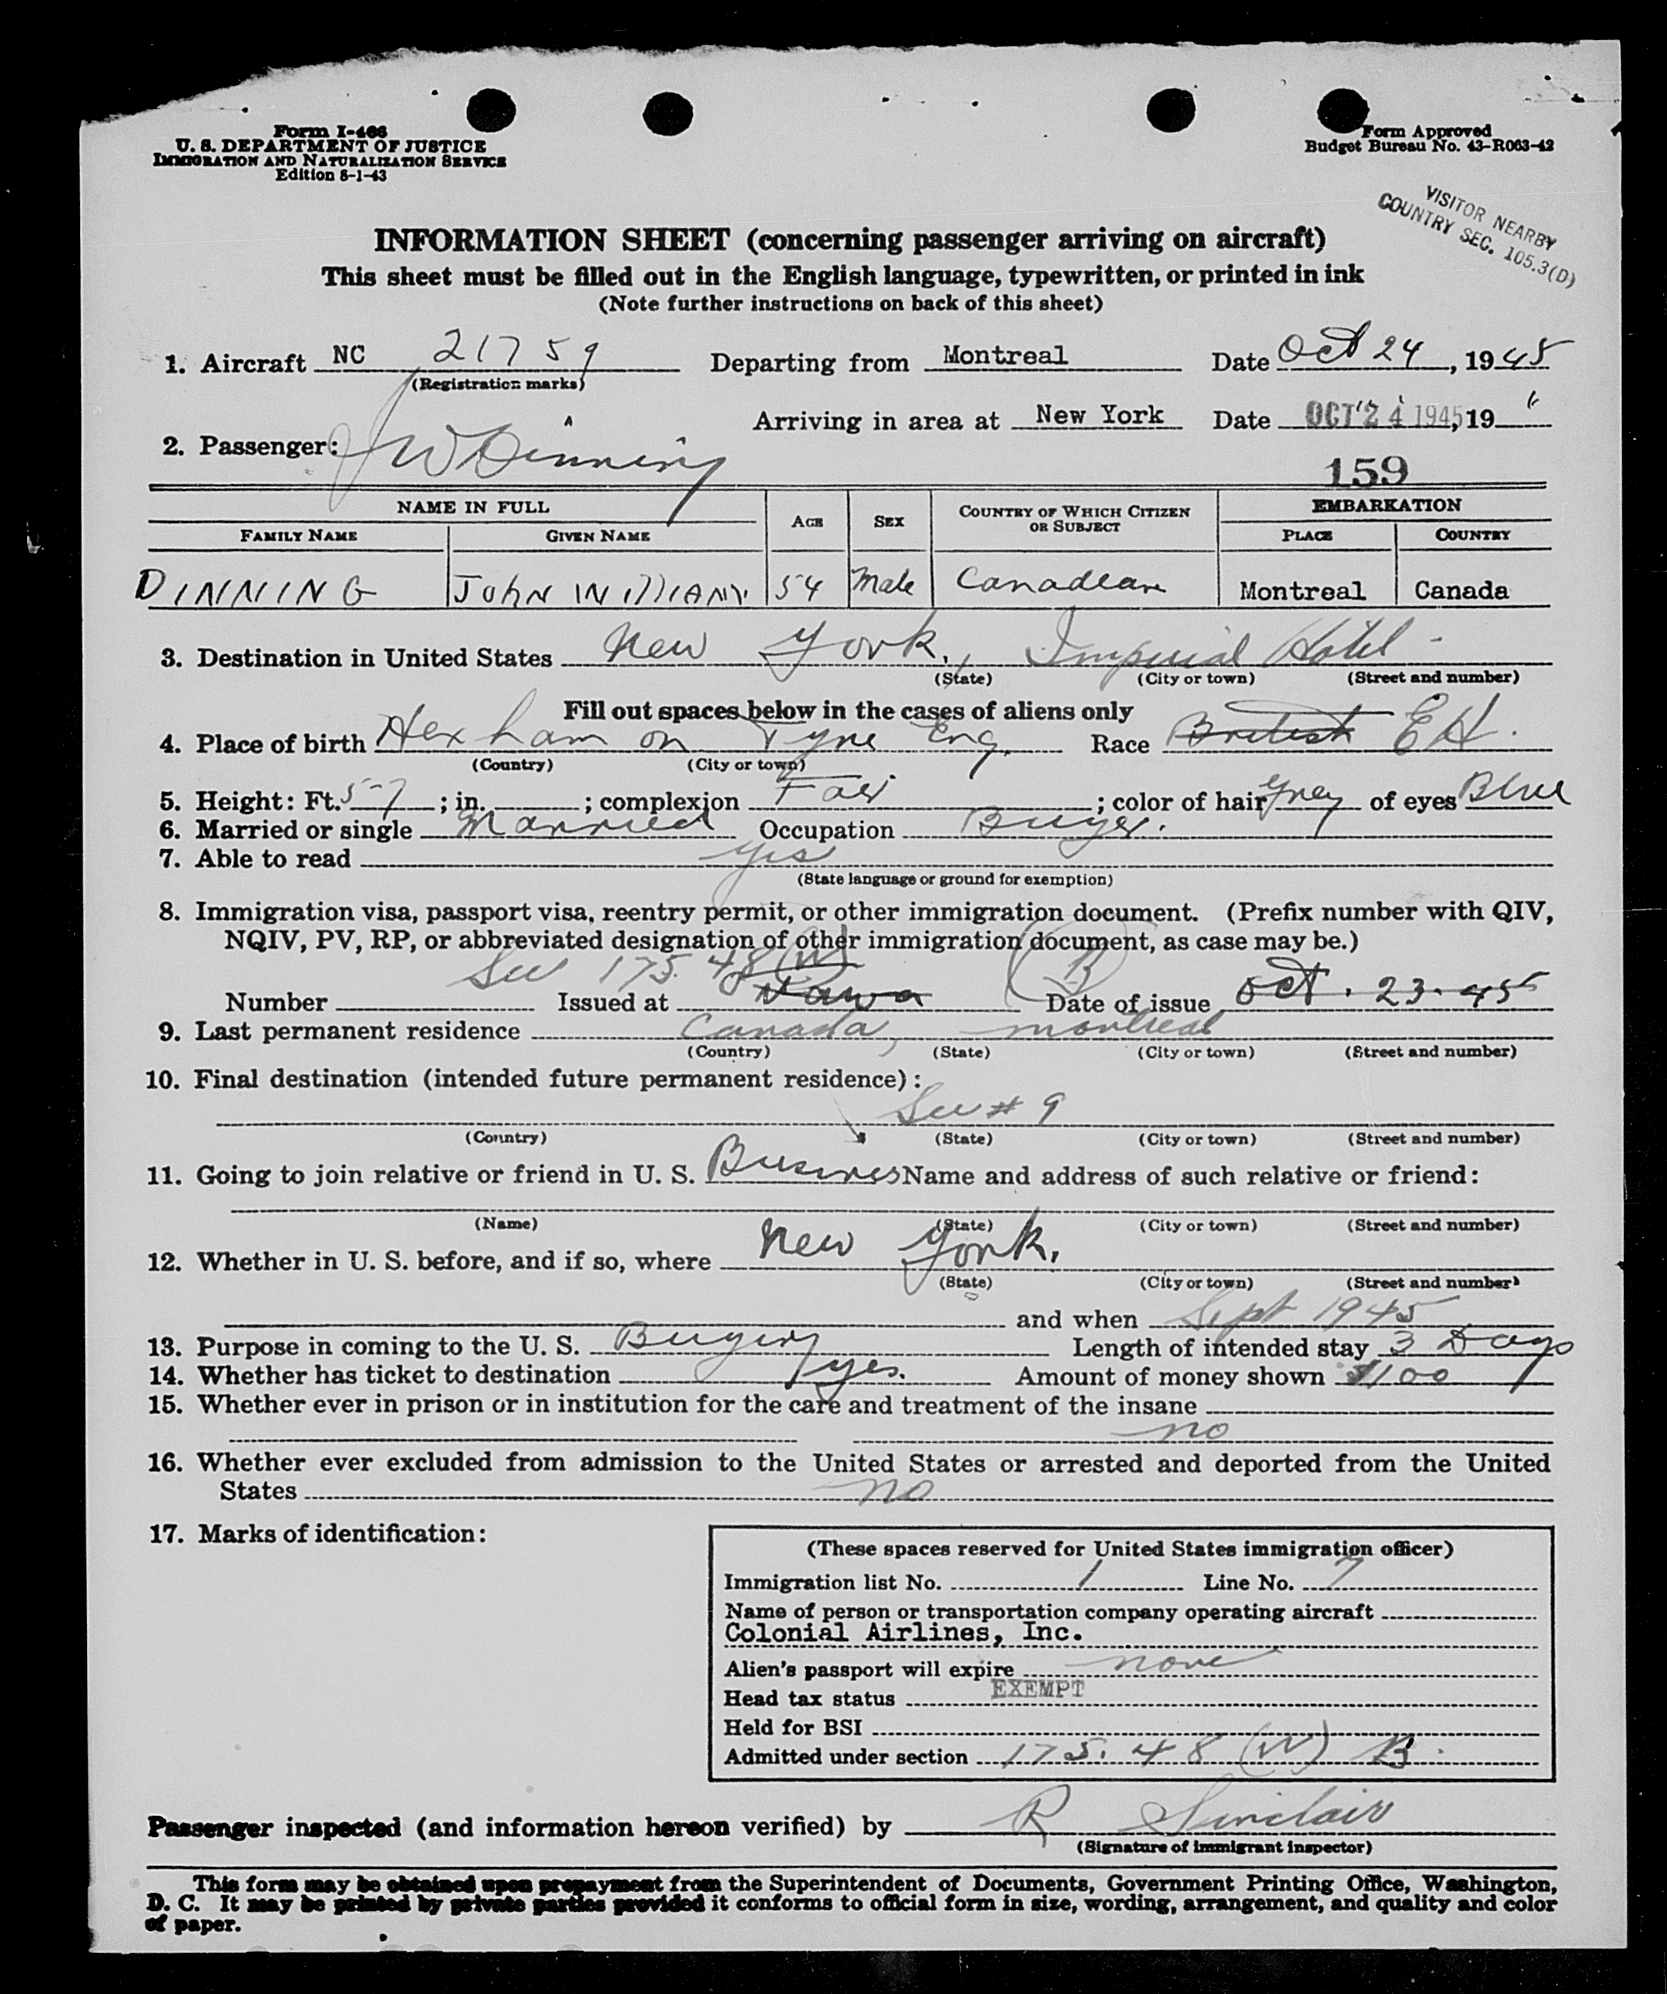 Form I-466
U. S. DEPARTMENT OF JUSTICE
IMMIGRATION AND NATURALIZATION SERVICE
Edition 8-1-43
Form Approved
Budget Bureau No. 43-R063-42
VISITOR NEARBY
COUNTRY SEC. 105.3(D)
INFORMATION SHEET (concerning passenger arriving on aircraft)
This sheet must be filled out in the English language, typewritten, or printed in ink
(Note further instructions on back of this sheet)
1. Aircraft NC 21759 Departing from Montreal Date Oct 24, 1945
(Registration marks)
Arriving in area at New York Date OCT 24 1945, 19 "
2. Passenger: J W Dinning
159
NAME IN FULL AGE SEX COUNTRY OF WHICH CITIZEN OR SUBJECT EMBARKATION
FAMILY NAME GIVEN NAME PLACE COUNTRY
DINNING JOHN WILLIAM 54 Male Canadian Montreal Canada
3. Destination in United States New York, Imperial Hotel
(State) (City or town) (Street and number)
Fill out spaces below in the cases of aliens only
4. Place of birth Hexham on Tyne Eng. Race British EH.
(Country) (City or town)
5. Height: Ft. 5-7; in. ; complexion Fair; color of hair Grey of eyes Blue
6. Married or single Married Occupation Buyer.
7. Able to read yes
(State language or ground for exemption)
8. Immigration visa, passport visa, reentry permit, or other immigration document. (Prefix number with QIV,
NQIV, PV, RP, or abbreviated designation of other immigration document, as case may be.)
Sec 175.48 (W) (B)
Number Issued at Ottawa Date of issue Oct. 23. 45
9. Last permanent residence Canada, Montreal
(Country) (State) (City or town) (Street and number)
10. Final destination (intended future permanent residence):
See # 9
(Country) (State) (City or town) (Street and number)
11. Going to join relative or friend in U. S. Business Name and address of such relative or friend:
(Name) (State) (City or town) (Street and number)
12. Whether in U. S. before, and if so, where New York.
(State) (City or town) (Street and number)
and when Sept 1945
13. Purpose in coming to the U. S. Buying Length of intended stay 3 Days
14. Whether has ticket to destination yes. Amount of money shown $100
15. Whether ever in prison or in institution for the care and treatment of the insane
no
16. Whether ever excluded from admission to the United States or arrested and deported from the United
States no
17. Marks of identification:
(These spaces reserved for United States immigration officer)
Immigration list No. 1 Line No. 7
Name of person or transportation company operating aircraft
Colonial Airlines, Inc.
Alien's passport will expire none
Head tax status EXEMPT
Held for BSI
Admitted under section 175.48 (W) B.
Passenger inspected (and information hereon verified) by R Sinclair
(Signature of immigrant inspector)
This form may be obtained upon prepayment from the Superintendent of Documents, Government Printing Office, Washington,
D. C. It may be printed by private parties provided it conforms to official form in size, wording, arrangement, and quality and color
of paper.